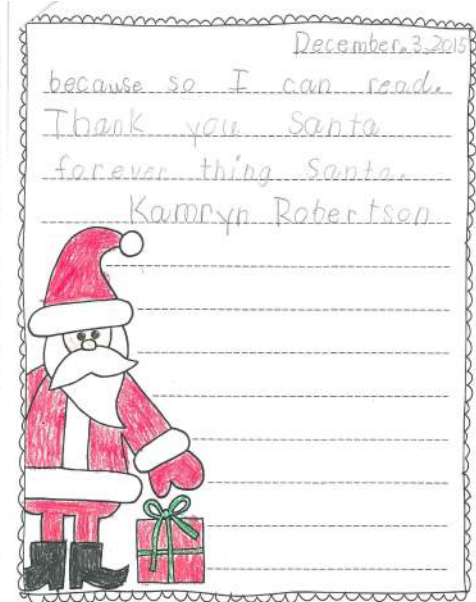 December.3.2015
because so I can read.
Thank you Santa
forever thing Santa.
Kamryn Robertson